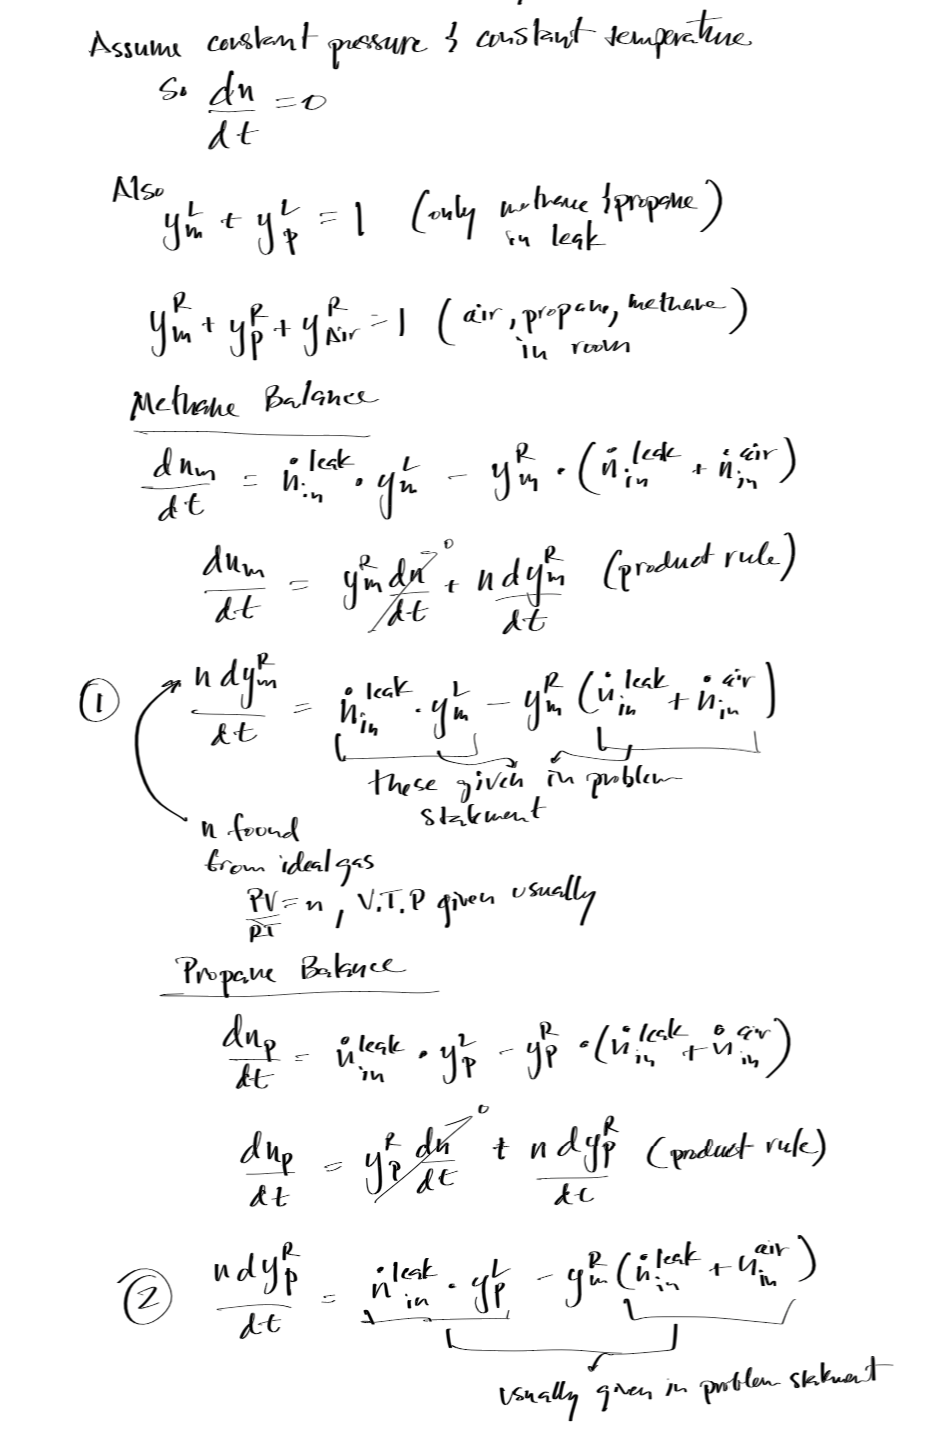 Assume constant pressure & constant temperature
So dn/dt = 0
Also
y_m^L + y_p^L = 1 (only methane & propane in leak)
y_m^R + y_p^R + y_Air^R = 1 (air, propane, methane in room)
Methane Balance
dn_m/dt = ṅ_in^leak · y_m^L − y_m^R · (ṅ_in^leak + ṅ_in^air)
dn_m/dt = y_m^R dn/dt → 0 + n dy_m^R/dt (product rule)
① n dy_m^R/dt = ṅ_in^leak · y_m^L − y_m^R (ṅ_in^leak + ṅ_in^air)
these given in problem
statement
n found
from ideal gas
PV/RT = n, V.T.P given usually
Propane Balance
dn_p/dt = ṅ_in^leak · y_p^L − y_p^R · (ṅ_in^leak + ṅ_in^air)
dn_p/dt = y_p^R dn/dt → 0 + n dy_p^R/dt (product rule)
② n dy_p^R/dt = ṅ_in^leak · y_p^L − y_m^R (ṅ_in^leak + n_in^air)
usually given in problem statement